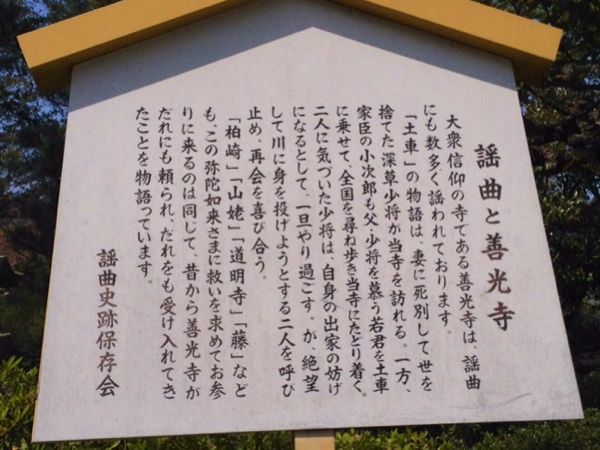 謡曲と善光寺
大衆信仰の寺である善光寺は、謡曲
にも数多く謡われております。
「土車」の物語は、妻に死別して世を
捨てた深草少将が当寺を訪れる。一方、
家臣の小次郎も父・少将を慕う若君を土車
に乗せて、全国を尋ね歩き当寺にたどり着く。
二人に気づいた少将は、自身の出家の妨げ
になるとして、一旦やり過ごす。が、絶望
して川に身を投げようとする二人を呼び
止め、再会を喜び合う。
「柏崎」「山姥」「道明寺」「藤」など
も、この弥陀如来さまに救いを求めてお参
りに来るのは同じで、昔から善光寺が
だれにも頼られ、だれをも受け入れてき
たことを物語っています。
謡曲史跡保存会